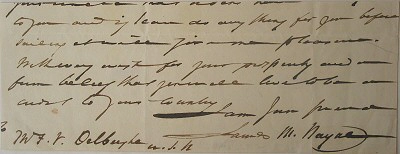 to you and if I can do any thing for you before
sailing it will give me pleasure.
With every wish for your prosperity and a
firm belief that you will live to be an
to your Country
I am Your friend
James M.
To
Mr F. V. U.S.N